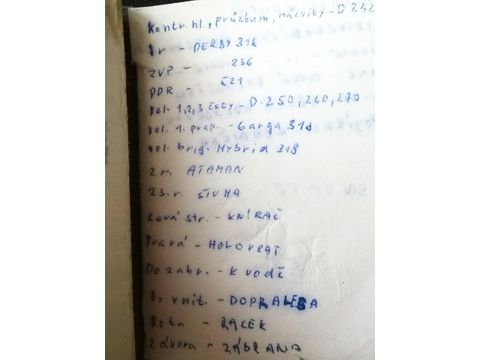 Kontr. hl., průzkum, nácviky - D 232
Vr - DERBY 318
ZVP - 236
PDR - 521
Vel. 1,2,3 čety - D. 250, 260, 270
Vel. 1. prap. - Garga 318
Vel. brig. Hybrid 318
2 r. ATAMAN
23. r. STUHA
Levá str. - KNÍRAČ
Pravá - HOLOVRAT
Do zahr. - K vodě
Do vnit. - DOPRALESA
Rota - RACEK
Závora - ZÁBRANA